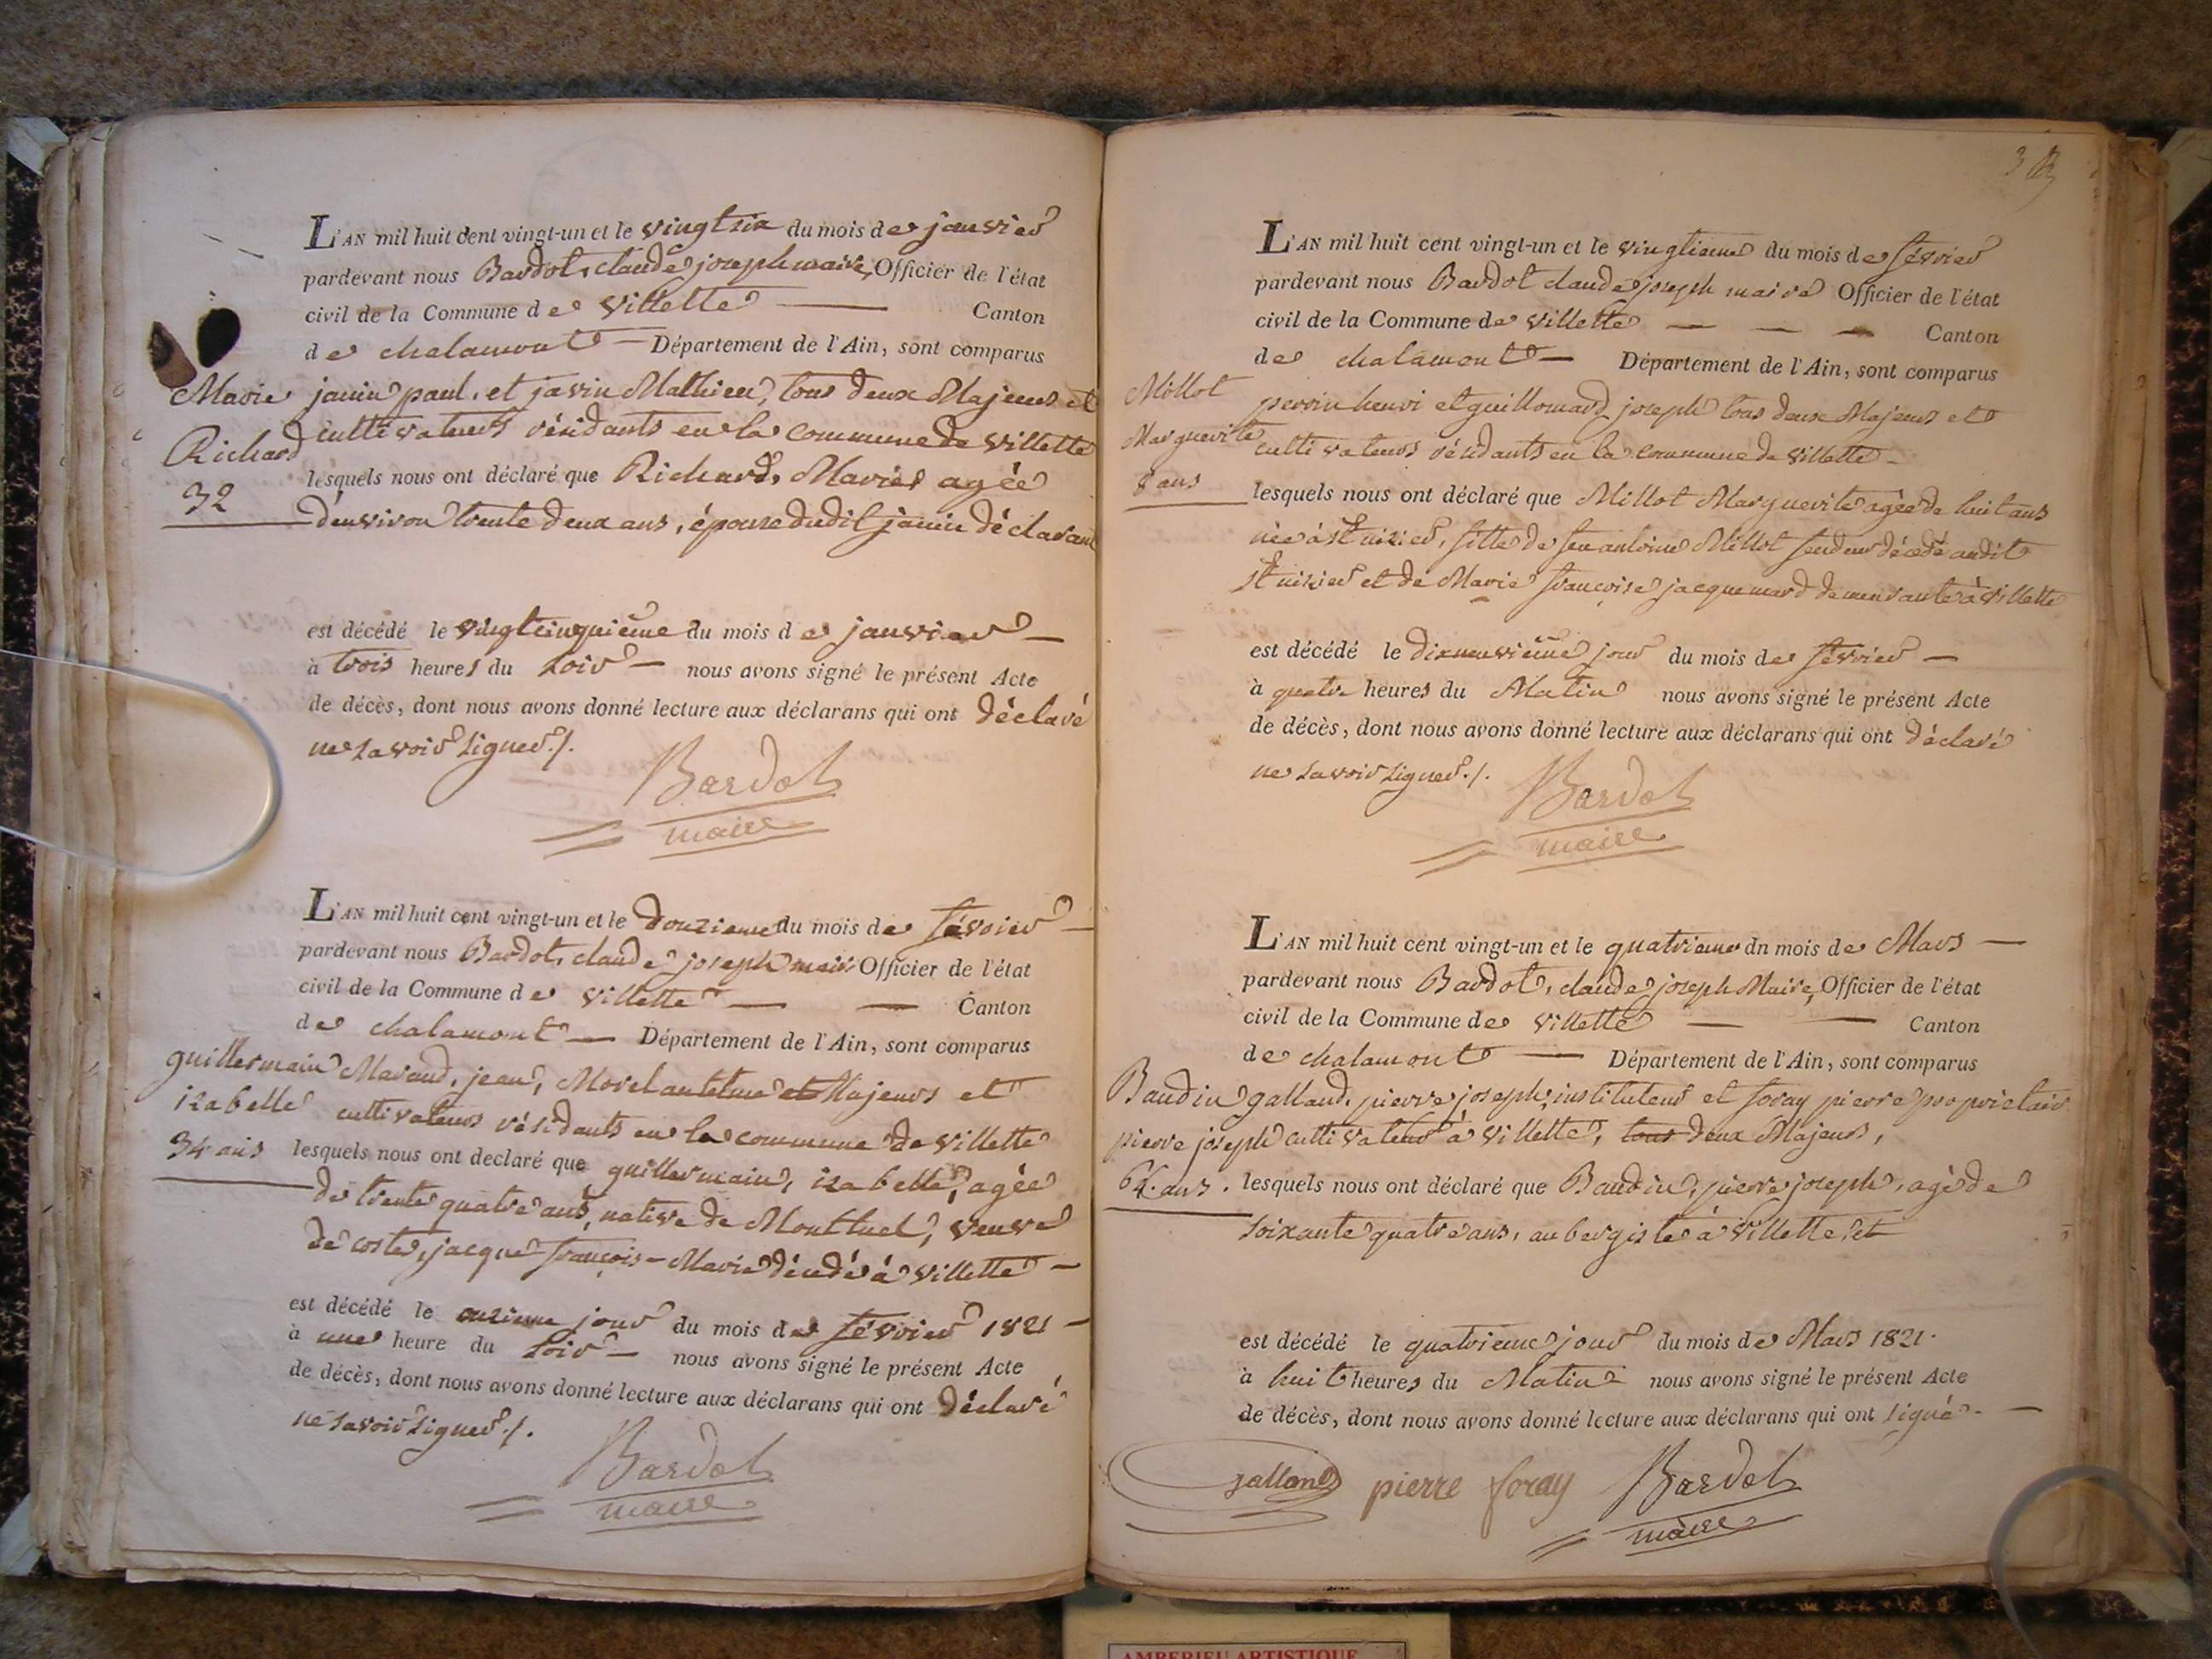 L'AN mil huit cent vingt-un et le vingtsix du mois de janvier
pardevant nous Bardot, claude joseph maire, Officier de l'état
civil de la Commune de villette — Canton
de chalamont — Département de l'Ain, sont comparus
Marie
Richard
32
janin paul, et javin Mathieu, tous deux Majeurs et
cultivateurs résidants en la commune de villette
lesquels nous ont déclaré que Richard, Marie agée
d'environ trente deux ans, épouse dudit janin déclarant
est décédé le vingtcinquième du mois de janvier —
à trois heures du soir — nous avons signé le présent Acte
de décès, dont nous avons donné lecture aux déclarans qui ont déclaré
ne savoir signer ./.
Bardot
maire
L'AN mil huit cent vingt-un et le douzieme du mois de février —
pardevant nous Bardot, claude joseph maire Officier de l'état
civil de la Commune de villette — — Canton
de chalamont — Département de l'Ain, sont comparus
guillermain
izabelle
34 ans
Maraud, jean, Morel antelme et Majeurs et
cultivateurs résidants en la commune de villette
lesquels nous ont declaré que guillermain, izabelle, agée
de trente quatre ans, native de Montluel, veuve
de coste, jacque françois-Marie décédé à villette —
est décédé le onzieme jour du mois de février 1821 —
à une heure du soir — nous avons signé le présent Acte
de décès, dont nous avons donné lecture aux déclarans qui ont déclaré
ne savoir signer ./.
Bardot
maire
3
L'AN mil huit cent vingt-un et le vingtieme du mois de février
pardevant nous Bardot claude joseph maire Officier de l'état
civil de la Commune de villette — — — Canton
de chalamont — Département de l'Ain, sont comparus
Millot
Marguerite
8 ans
perrin henri et guillomard joseph tous deux Majeurs et
cultivateurs résidants en la commune de villette —
lesquels nous ont déclaré que Millot Marguerite agée de huit ans
née à st nizier, fille de feu antoine Millot décédé audit
st nizier et de Marie françoise jacquemard demeurante à villette
est décédé le dixneuvième jour du mois de février —
à quatre heures du Matin nous avons signé le présent Acte
de décès, dont nous avons donné lecture aux déclarans qui ont déclaré
ne savoir signer ./.
Bardot
maire
L'AN mil huit cent vingt-un et le quatrieme dn mois de Mars —
pardevant nous Bardot, claude joseph Maire, Officier de l'état
civil de la Commune de villette — — Canton
de chalamont — Département de l'Ain, sont comparus
Baudin
pierre joseph
64 ans.
galland, pierre joseph, instituteur et foray pierre proprietaire
cultivateur à villette, tous deux Majeurs,
lesquels nous ont déclaré que Baudin, pierre joseph, agé de
soixante quatre ans, aubergiste à villette, et
est décédé le quatrieme jour du mois de Mars 1821.
à huit heures du Matin nous avons signé le présent Acte
de décès, dont nous avons donné lecture aux déclarans qui ont signé. —
galland pierre foray Bardot
maire
AMBERIEU ARTISTIQUE